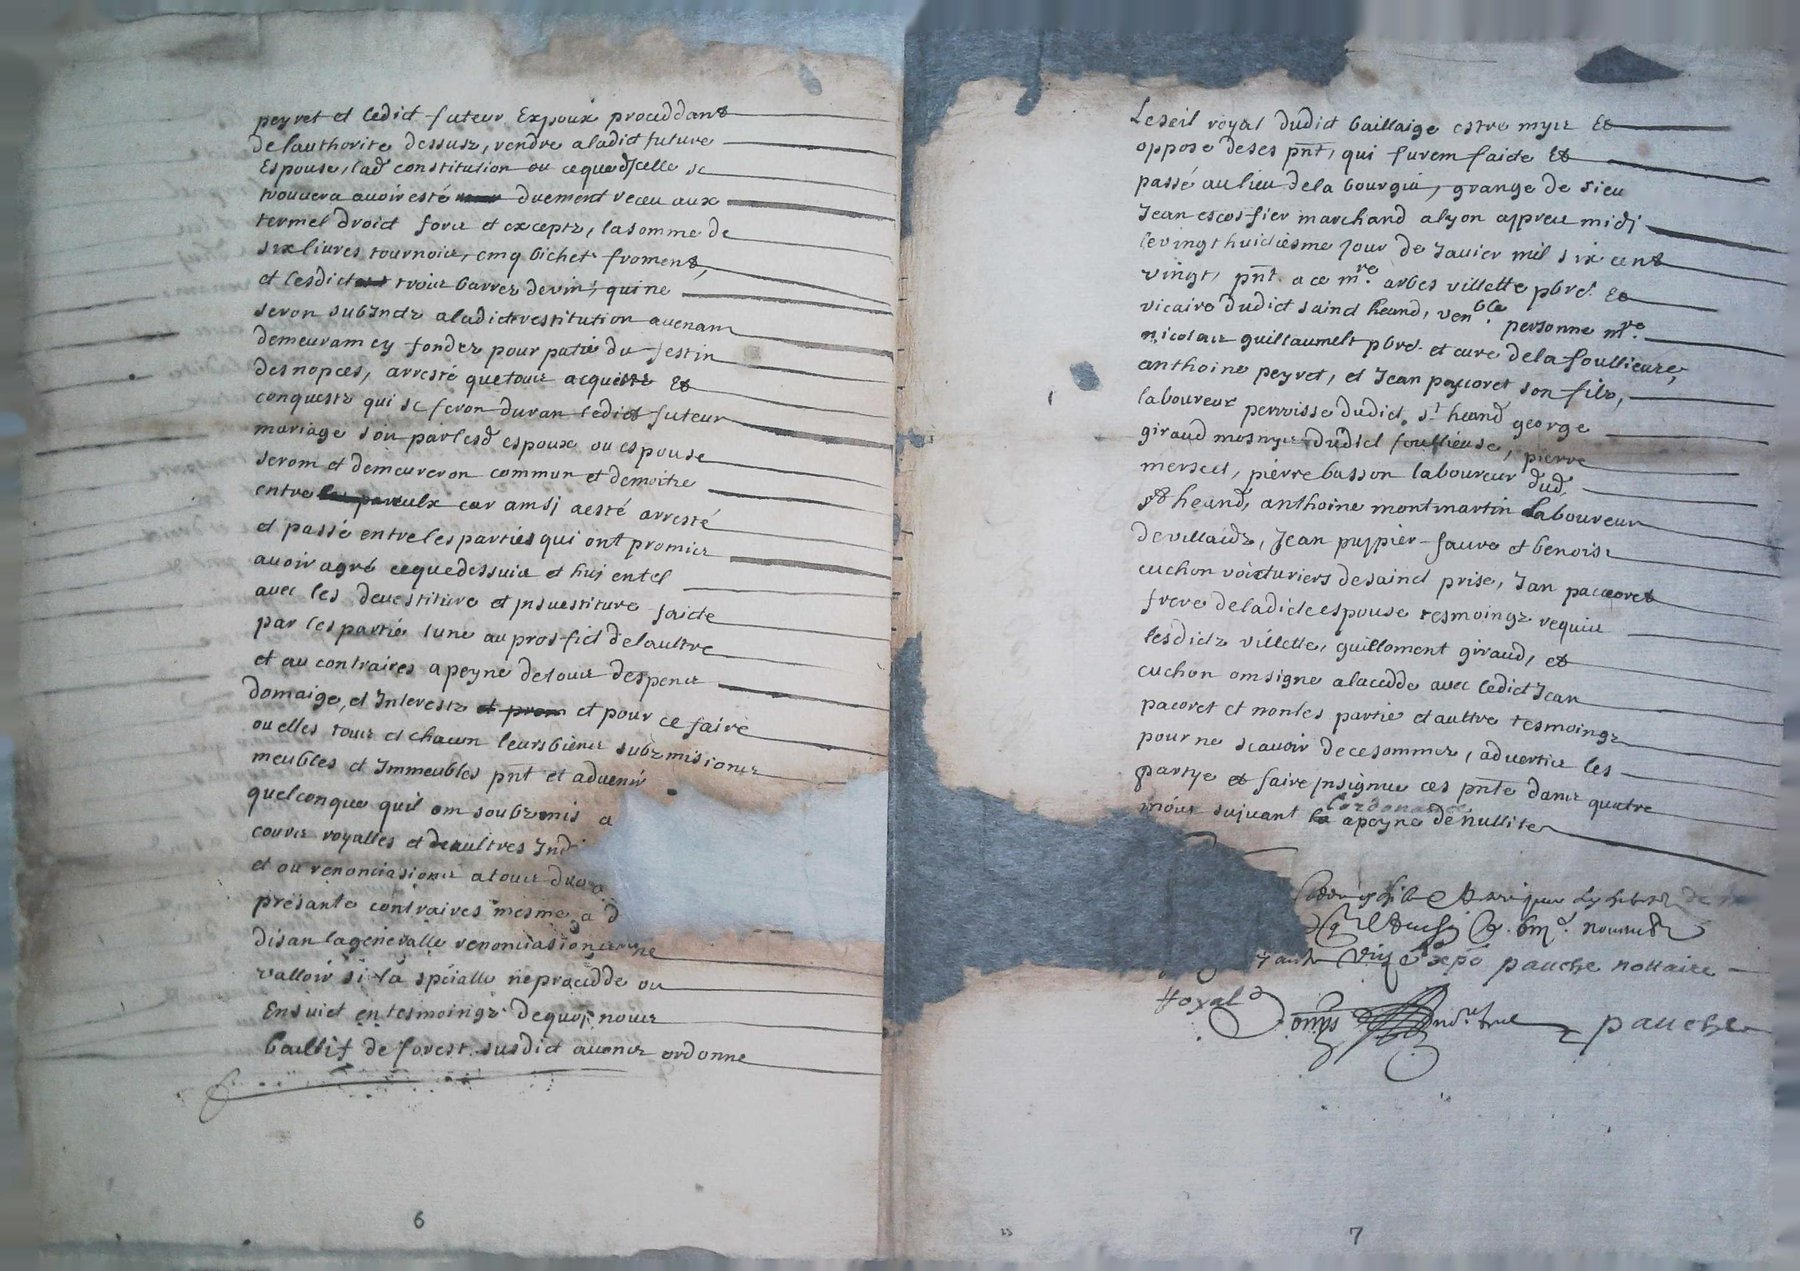 peyret et ledict futeur Expoux proceddant
de lauthorite dessus, rendre a ladict future
Espouse, lad constitution ou ce que dicelle se
trouvera avoir esté duement receu aux
termes droict forcé et excepte, la somme de
six livres tournois, cinq bichet froment,
et lesdict trois barrez de vin, qui ne
seron subjectz a ladict restitution avenam
demeuram cy fondez pour patie du festin
des nopces, arresté que tous acquestz Et
conquestz qui se feron duran ledict futeur
mariage soit par lesd espoux ou espouse
serom et demeureron commun et demoitie
entre car ainsi a esté arresté
et passé entre les parties qui ont promis
avoir agré ce que dessuis et huj entel
avec les devestiture et Investiture faicte
par les partie lune au prosfict de laultre
et au contraires a peyne de tous despens
domaige, et Interestz et pour ce faire
ou elles tous et chacun leurs biens subzmisions
meubles et Immeubles pnt et advenir
quelconque quil om soubzmis a
cours royalles et deaultres Ind
et ou renonciasions a tous
presante contraires mesme a d
disan la generalle renonciasion ne
valloir si la speialle ne procedde ou
Ensuict en tesmoingz de quoi nous
baillif de forest susdict avons ordonne
6
Le seil royal dudict bailliaige estre mys Et
oppose de ses pnt, qui furem faicte Et
passé au lieu de la bourgia, grange de sieu
Jean escoffier marchand a lyon appres midi
le vingt huictiesme jour de Janvier mil six cent
vingt, pnt a ce mre arbes villette pbre Et
vicaire dudict sainct heand, venble personne mre
nicolas guillaumelt pbre et cure de la foullieuze,
anthoine peyret, et Jean paycoret son filz,
laboureur perroisse dudict st heand george
giraud mosnyer dudict foullieuse, pierre
merseel, pierre basson laboureur dud
st heand, anthoine montmartin laboureur
de villaidz, Jean puppier fauvo et benoist
cuchon voicturiers de sainct prise, Jan paccoret
frere de ladicte espouse tesmoingz requis
lesdictz villette, guilloment giraud, et
cuchon om signe a la cedde avec ledict Jean
pacoret et non les partie et aultre tesmoingz
pour ne scavoir de ce sommez, advertis les
partye et faire Insignue ces pnte dans quatre
mois sujvant lordonance a peyne de nullite
expe pauche nottaire
Royal
pauche
7